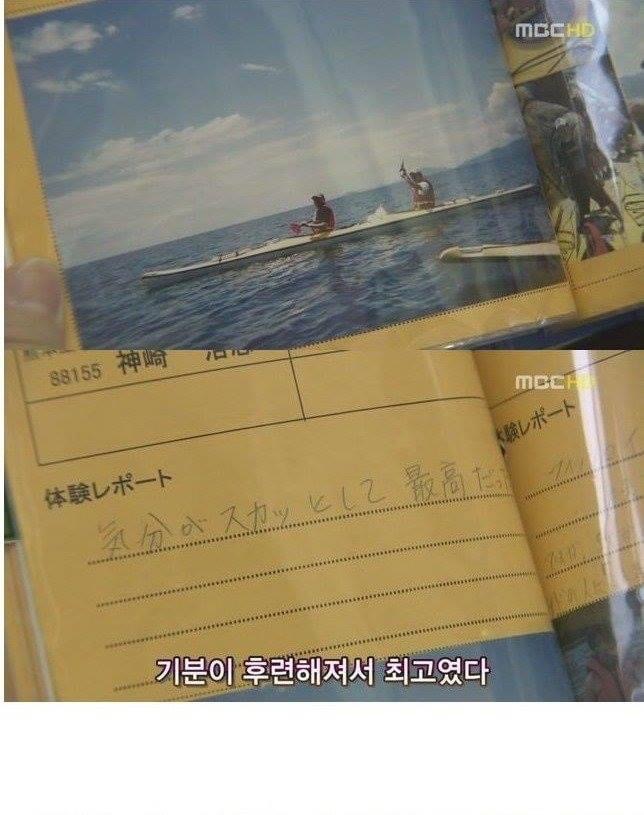 MBCHD
MBCHD
88155 神崎
体験レポート
体験レポート
気分がスカッとして最高だっ
기분이 후련해져서 최고였다